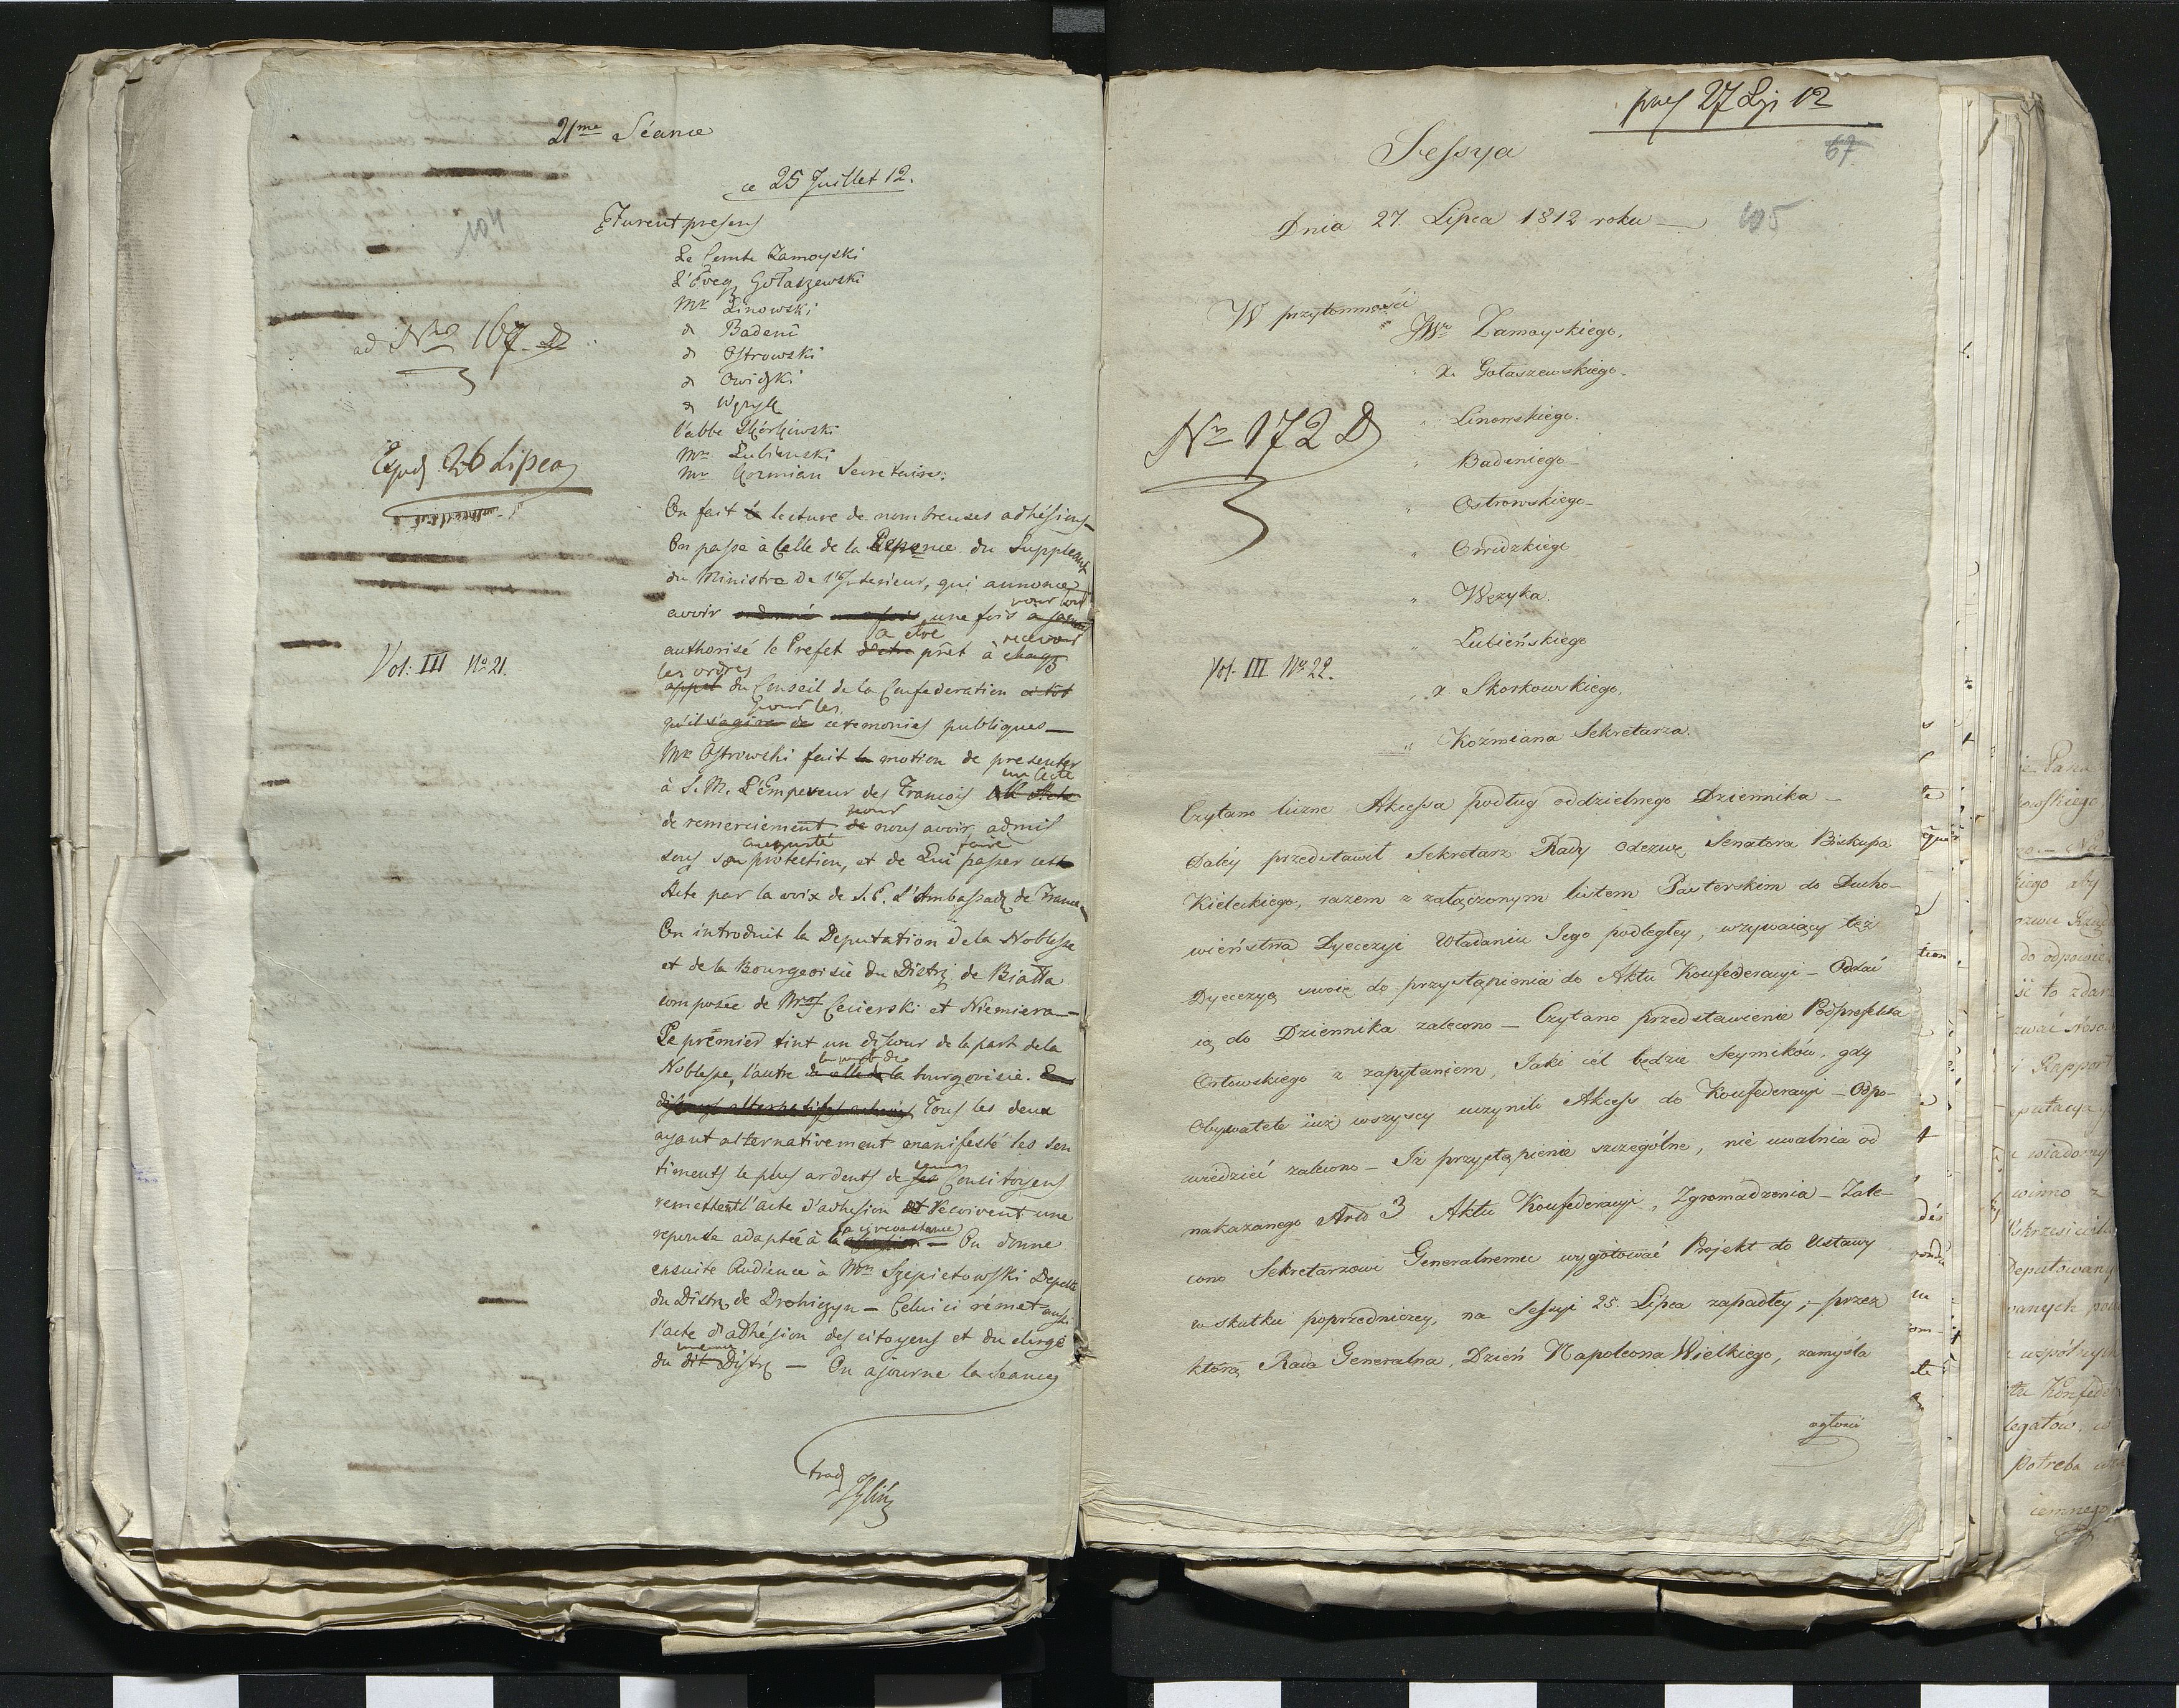 21me Séance
ce 25 Juillet 12.
104
Furent presens
Le Comte Zamoyski
L'Eveq Gołaszewski
Mr Linowski
d Badeni
d Ostrowski
d Owidzki
d Węzyk
l'abbe Skórkowski
Mr Lubienski
Mr Kozmian Secretaire.
ad Nro 167 D
Exped. 26 Lipca
Vol: III No 21.
On fait la lecture de nombreuses adhésions_
On passe à celle de la Reponce du Suppleant
du Ministre de l'Interieur, qui annonce
pour tout
avoir ordonné une fois une fois
a être recevoir
authorisé le Prefet d'etre prêt à chaq
les ordres
appel du Conseil de la Confederation
pour les
qu'il s'agira de ceremonies publiques_
Mr Ostrowski fait la motion de presenter
un Acte
à S. M. L'Empereur des Francois
pour
de remerciement de nous avoir admis
auguste faire
sous son protection, et de Lui passer cette
Acte par la voix de S. E. L'Ambassad de France_
On introduit la Deputation de la Noblesse
et de la Bourgeoisie du Distr de Biała
composée de Mrs Ceceirski et Niemiera_
Le prémier tint un discour de la part de la
Noblesse, l'autre de celle de la bourgoisie.
Tous les deux
ayant alternativement manifesté les sen
timents le plus ardents de leurs Concitoyens
remettent l'acte d'adhesion et recoivent une
la circonstance
reponse adaptée à la _ On donne
ensuite Audience à Mr Szepietowski Deputé
du Distr de Drohiczyn _ Celui ci rémet aussi
l'acte d'adhésion des citoyens et du clergé
du dit Distr _ On ajourne la seance
trad
prae 27 Lip 12
67.
Sessya
Dnia 27. Lipca 1812 roku
105
W przytomności JWo Zamoyskiego.
" X. Gołaszewskiego_
" Linowskiego.
" Badeniego_
" Ostrowskiego_
" Owidzkiego
" Węzyka.
" Lubieńskiego
" X. Skorkowskiego.
" Koźmiana Sekretarza.
No 172 D
Vol. III No 22.
Czytano liczne Akcessa podług oddzielnego Dziennika_
Daléy przedstawił Sekretarz Rady odezwę Senatora Biskupa
Kieleckiego, razem z załączonym listem Pasterskim do Ducho-
wieństwa Dyecezyi Władaniu Jego podległey, wzywaiący też
Dyecezyą swoią do przystąpienia do Aktu Konfederacyi_ Oddać
ią do Dziennika zalecono_ Czytano przedstawienie Podprefekta
Orłowskiego z zapytaniem, Jaki cel będzie Seymików, gdy
Obywatele iuż wszyscy uczynili Akcess do Konfederacyi_ Odpo-
wiedzieć zalecono_ Iż przystąpienie szczególne, nie uwalnia od
nakazanego Artlo 3 Aktu Konfederacyi, Zgromadzenia_ Zale-
cono Sekretarzowi Generalnemu wygotować Projekt do Ustawy
w skutku poprzedniczey, na Sessyi 25. Lipca zapadłey, - przez
którą Rada Generalna, Dzień Napoleona Wielkiego, zamyśla
ogłosić